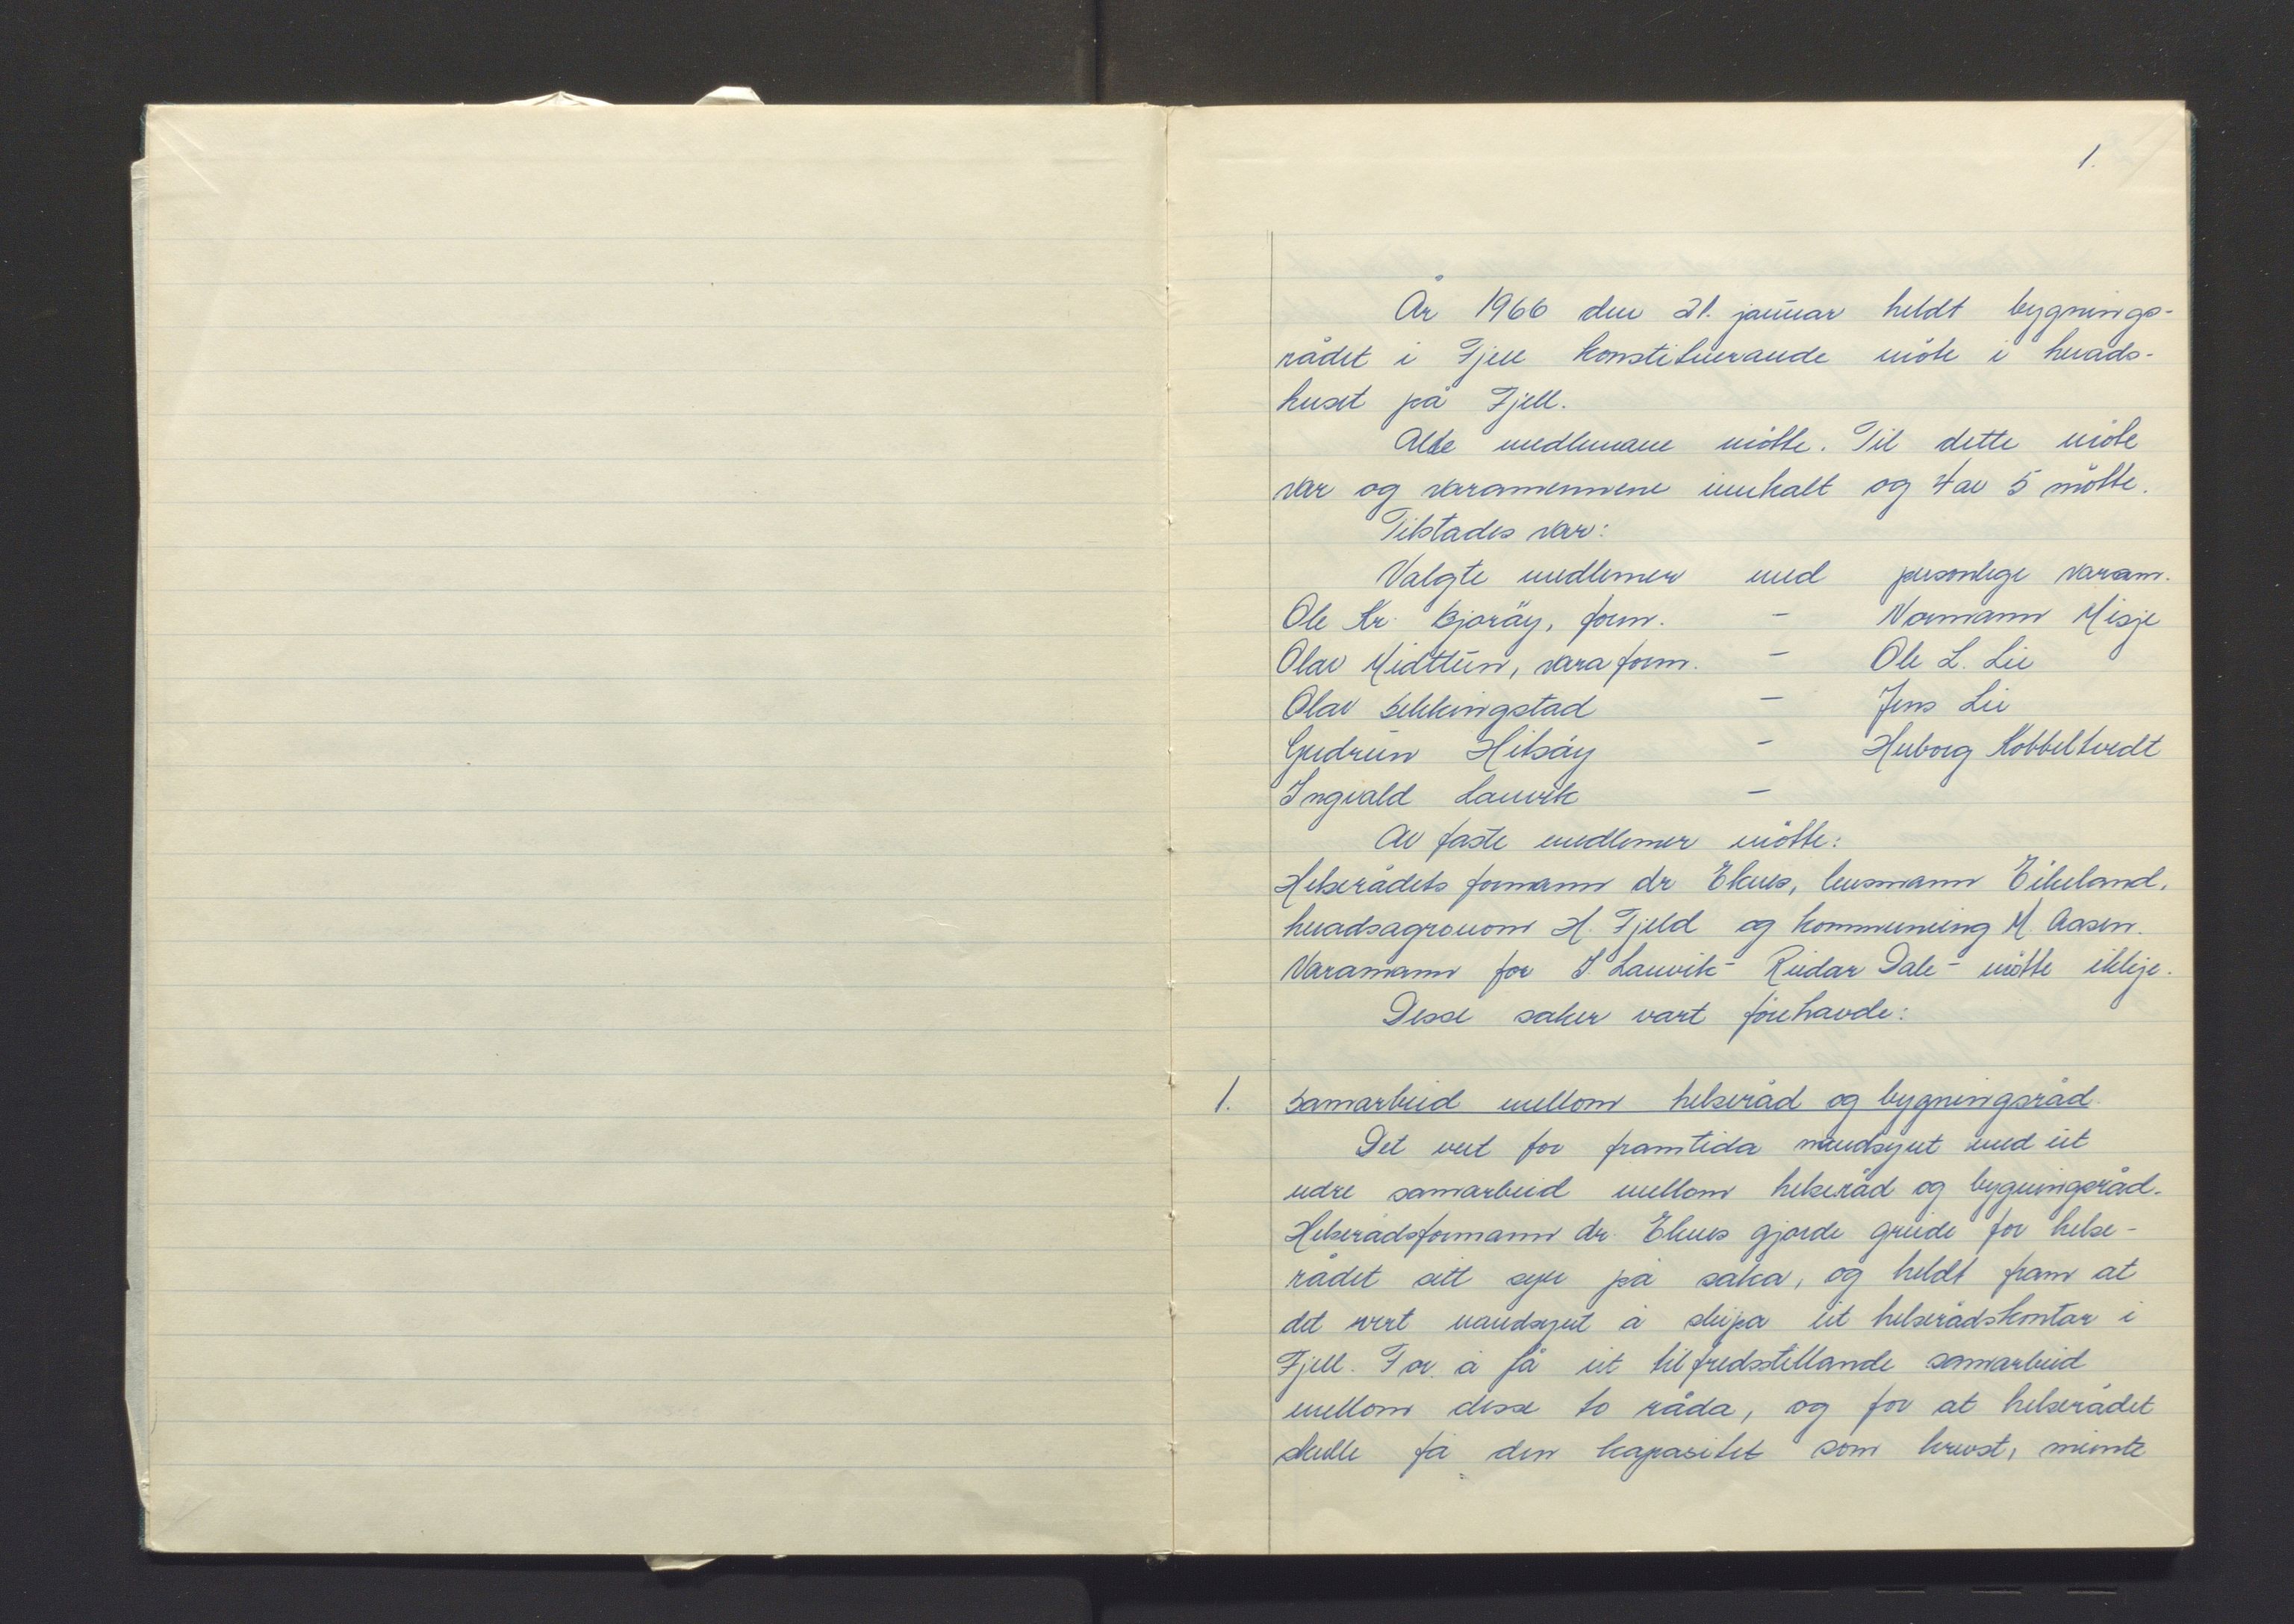 1.
År 1966 den 21. januar heldt bygnings-
rådet i Fjell konstituerande møte i herads-
huset på Fjell.
Alle medlemane møtte. Til dette møte
var og varamennene innkalt og 4 av 5 møtte.
Tilstades var:
Valgte medlemer med personlege varam.
Ole Kr. Bjorøy, form. - Normann Misje
Olav Midttun, varaform. - Ole L. Lie
Olav Sekkingstad - Jens Lie
Gudrun Hitsøy - Herborg Kobbeltvedt
Ingvald Lauvik -
Av faste medlemer møtte:
Helserådets formann dr Eknes, lensmann Eikeland,
heradsagronom H. Fjeld og kommuneing M. Aasen.
Varamann for I. Lauvik - Reidar Dale - møtte ikkje.
Desse saker vart førehavde:
1. Samarbeid mellom helseråd og bygningsråd
Det vert for framtida naudsynt med eit
nære samarbeid mellom helseråd og bygningsråd.
Helserådsformann dr. Eknes gjorde greide for helse-
rådet sitt syn på saka, og heldt fram at
det vert naudsynt å skipa eit helserådskontor i
Fjell. For å få eit tilfredsstillande samarbeid
mellom desse to råda, og for at helserådet
skulle få den kapasitet som krevst, meinte